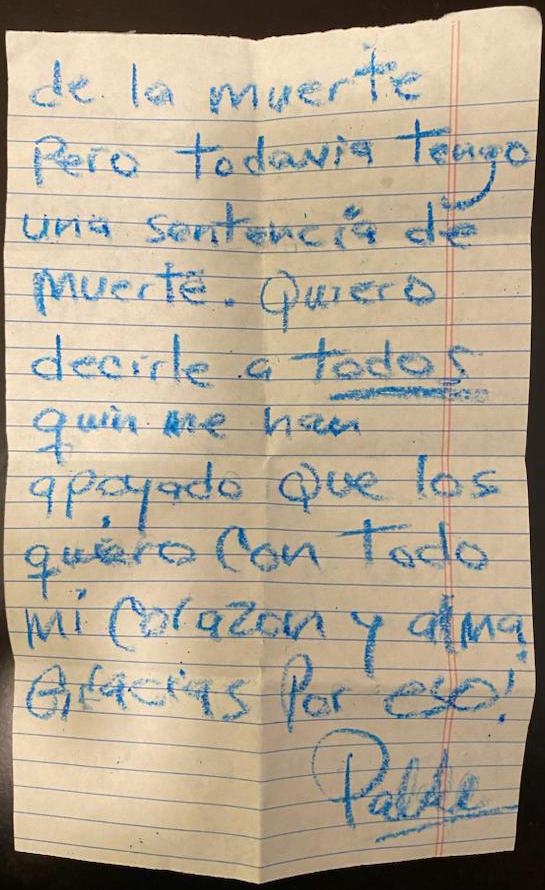 de la muerte
Pero todavia tengo
una sentencia de
muerte. Quiero
decirle a todos
quin me han
apoyado que los
quiero con todo
mi corazon y alma
Gracias Por eso!